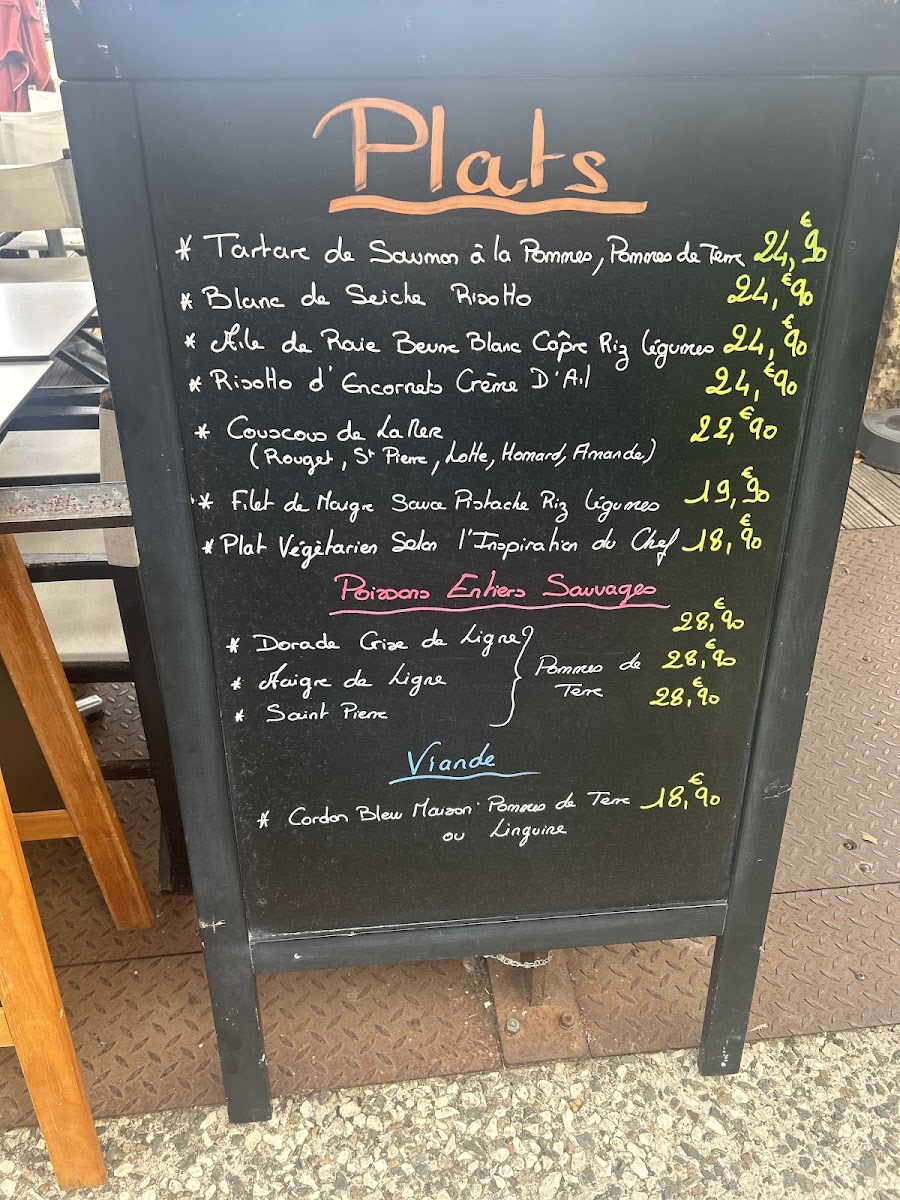 Plats
* Tartare de Saumon à la Pommes, Pommes de Terre 24,€90
* Blanc de Seiche Risotto 24,€90
* Aile de Raie Beurre Blanc Câpre Riz légumes 24,€90
* Risotto d'Encornets Crème D'Ail 24,€90
* Couscous de La Mer 22,€90
(Rouget, St Pierre, Lotte, Homard, Amande)
* Filet de Maigre Sauce Pistache Riz légumes 19,€90
* Plat Végétarien Selon l'Inspiration du Chef 18,€90
Poissons Entiers Sauvages
* Dorade Grise de Ligne 28,€90
* Maigre de Ligne Pommes de 28,€90
Terre
* Saint Pierre 28,€90
Viande
* Cordon Bleu Maison Pommes de Terre 18,€90
ou Linguine